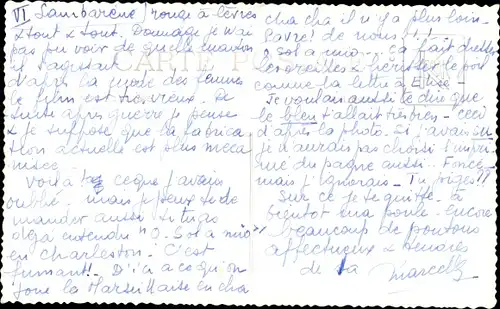 VI Lambaréné) rouge à lèvres
& tout & tout. Dommage je n'ai
pas pu voir de quelle
il s'agissait
d'après la mode des femmes
le film est très vieux. De
suite après guerre je pense
& je suppose que la fabrica
tion actuelle est plus méca
nisée.
Voilà ce que j'avais
oublié. mais je peux te de
mander aussi si tu as
déjà entendu "O. Sol a mio"
en charleston. C'est
fumant!. D'ici à ce qu'on
joue la Marseillaise en cha
cha cha il n'y a plus loin.
Pauvre! de nous!!!
O sol a mio... ça fait dresser
les oreilles & hérisser le poil
comme la lettre à Elise.
Je voulais aussi te dire que
le bleu t'allait très bien - ceci
d'après la photo. Si j'avais su
je n'aurais pas choisi l'impri
mé du pagne aussi.. Foncé
mais j'ignorais - Tu piges!!
Sur ce je te quitte. à
bientôt ma poule. encore
beaucoup de
affectueux & tendres
de ta Marcelle
CARTE POSTALE